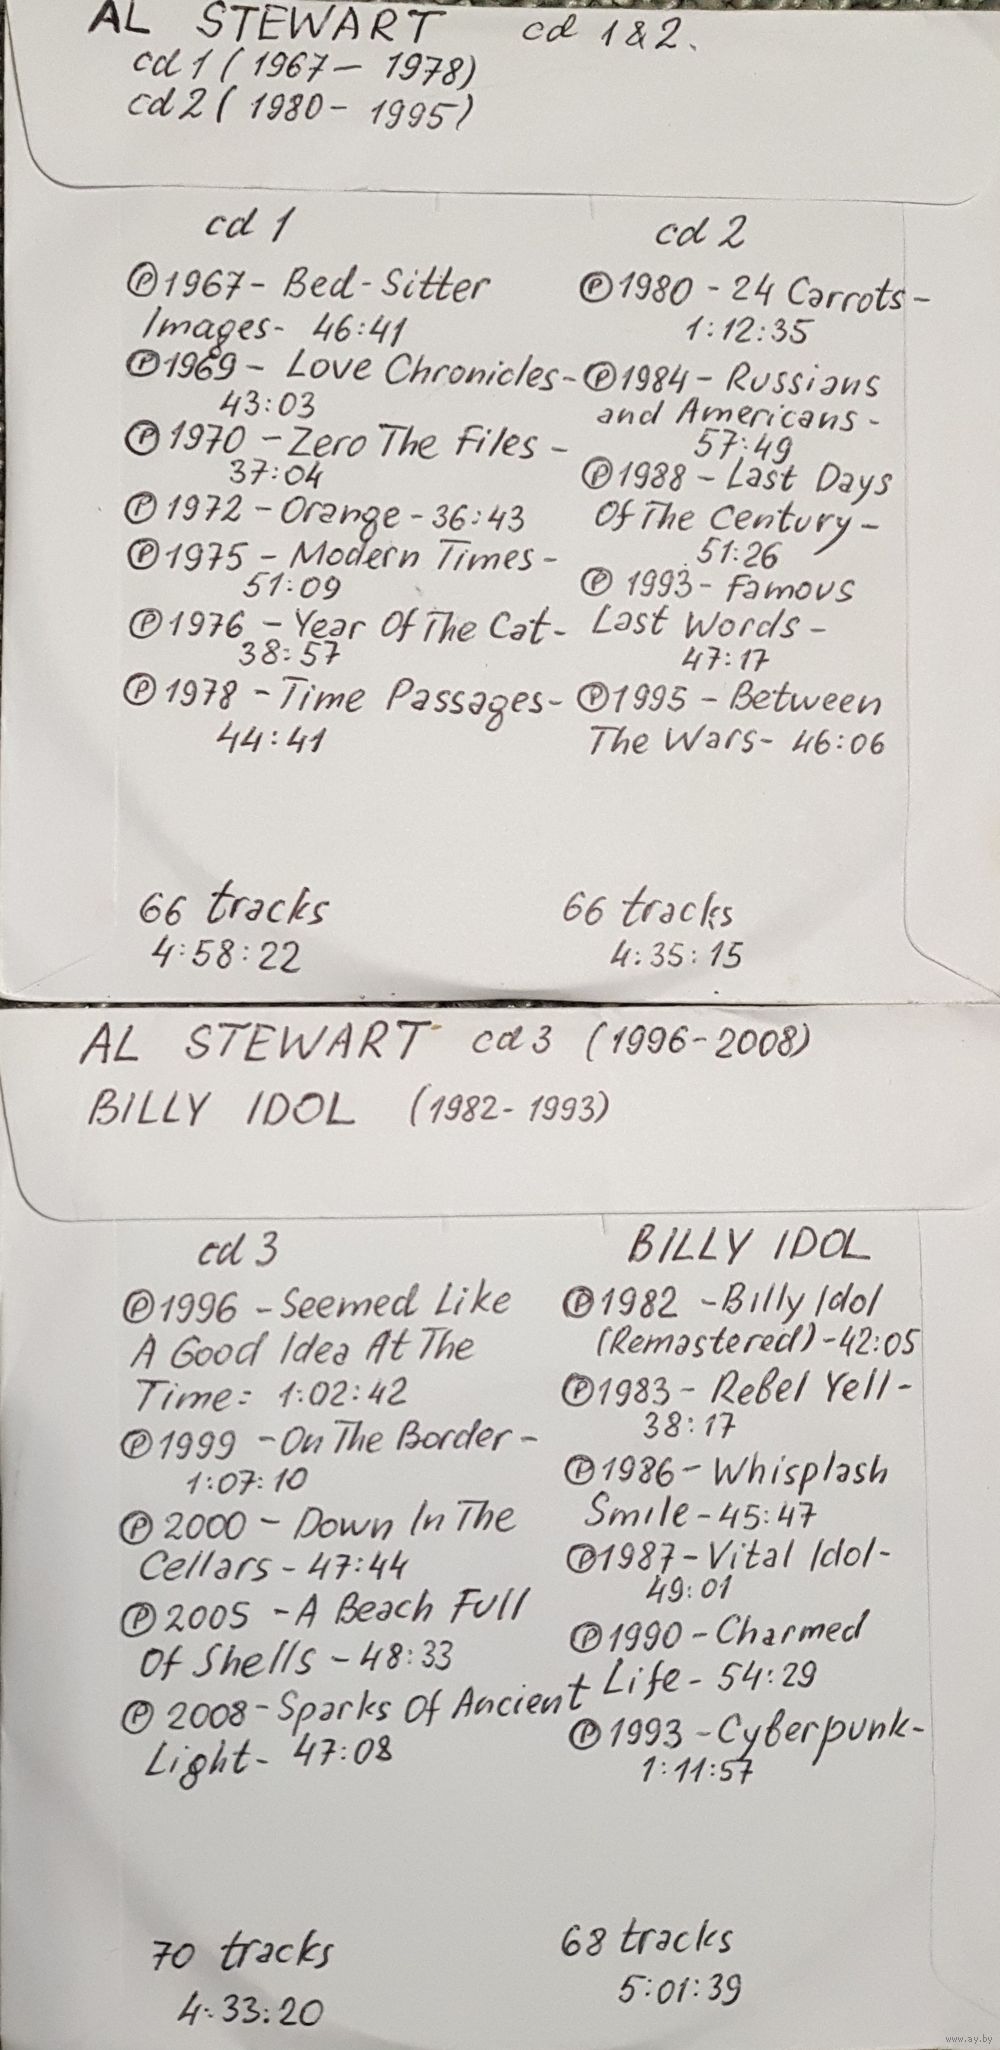 AL STEWART cd 1&2.
cd 1 (1967 - 1978)
cd 2 (1980 - 1995)
cd 1
℗1967 - Bed-Sitter
Images - 46:41
℗1969 - Love Chronicles -
43:03
℗1970 - Zero The Files -
37:04
℗1972 - Orange - 36:43
℗1975 - Modern Times -
51:09
℗1976 - Year Of The Cat -
38:57
℗1978 - Time Passages -
44:41
66 tracks
4:58:22
cd 2
℗1980 - 24 Carrots -
1:12:35
℗1984 - Russians
and Americans -
57:49
℗1988 - Last Days
Of The Century -
51:26
℗1993 - Famous
Last Words -
47:17
℗1995 - Between
The Wars - 46:06
66 tracks
4:35:15
AL STEWART cd 3 (1996-2008)
BILLY IDOL (1982-1993)
cd 3
℗1996 - Seemed Like
A Good Idea At The
Time = 1:02:42
℗1999 - On The Border -
1:07:10
℗2000 - Down In The
Cellars - 47:44
℗2005 - A Beach Full
Of Shells - 48:33
℗2008 - Sparks Of Ancient
Light - 47:08
70 tracks
4:33:20
BILLY IDOL
℗1982 - Billy Idol
(Remastered) - 42:05
℗1983 - Rebel Yell -
38:17
℗1986 - Whisplash
Smile - 45:47
℗1987 - Vital Idol -
49:01
℗1990 - Charmed
Life - 54:29
℗1993 - Cyberpunk -
1:11:57
68 tracks
5:01:39
www.ay.by